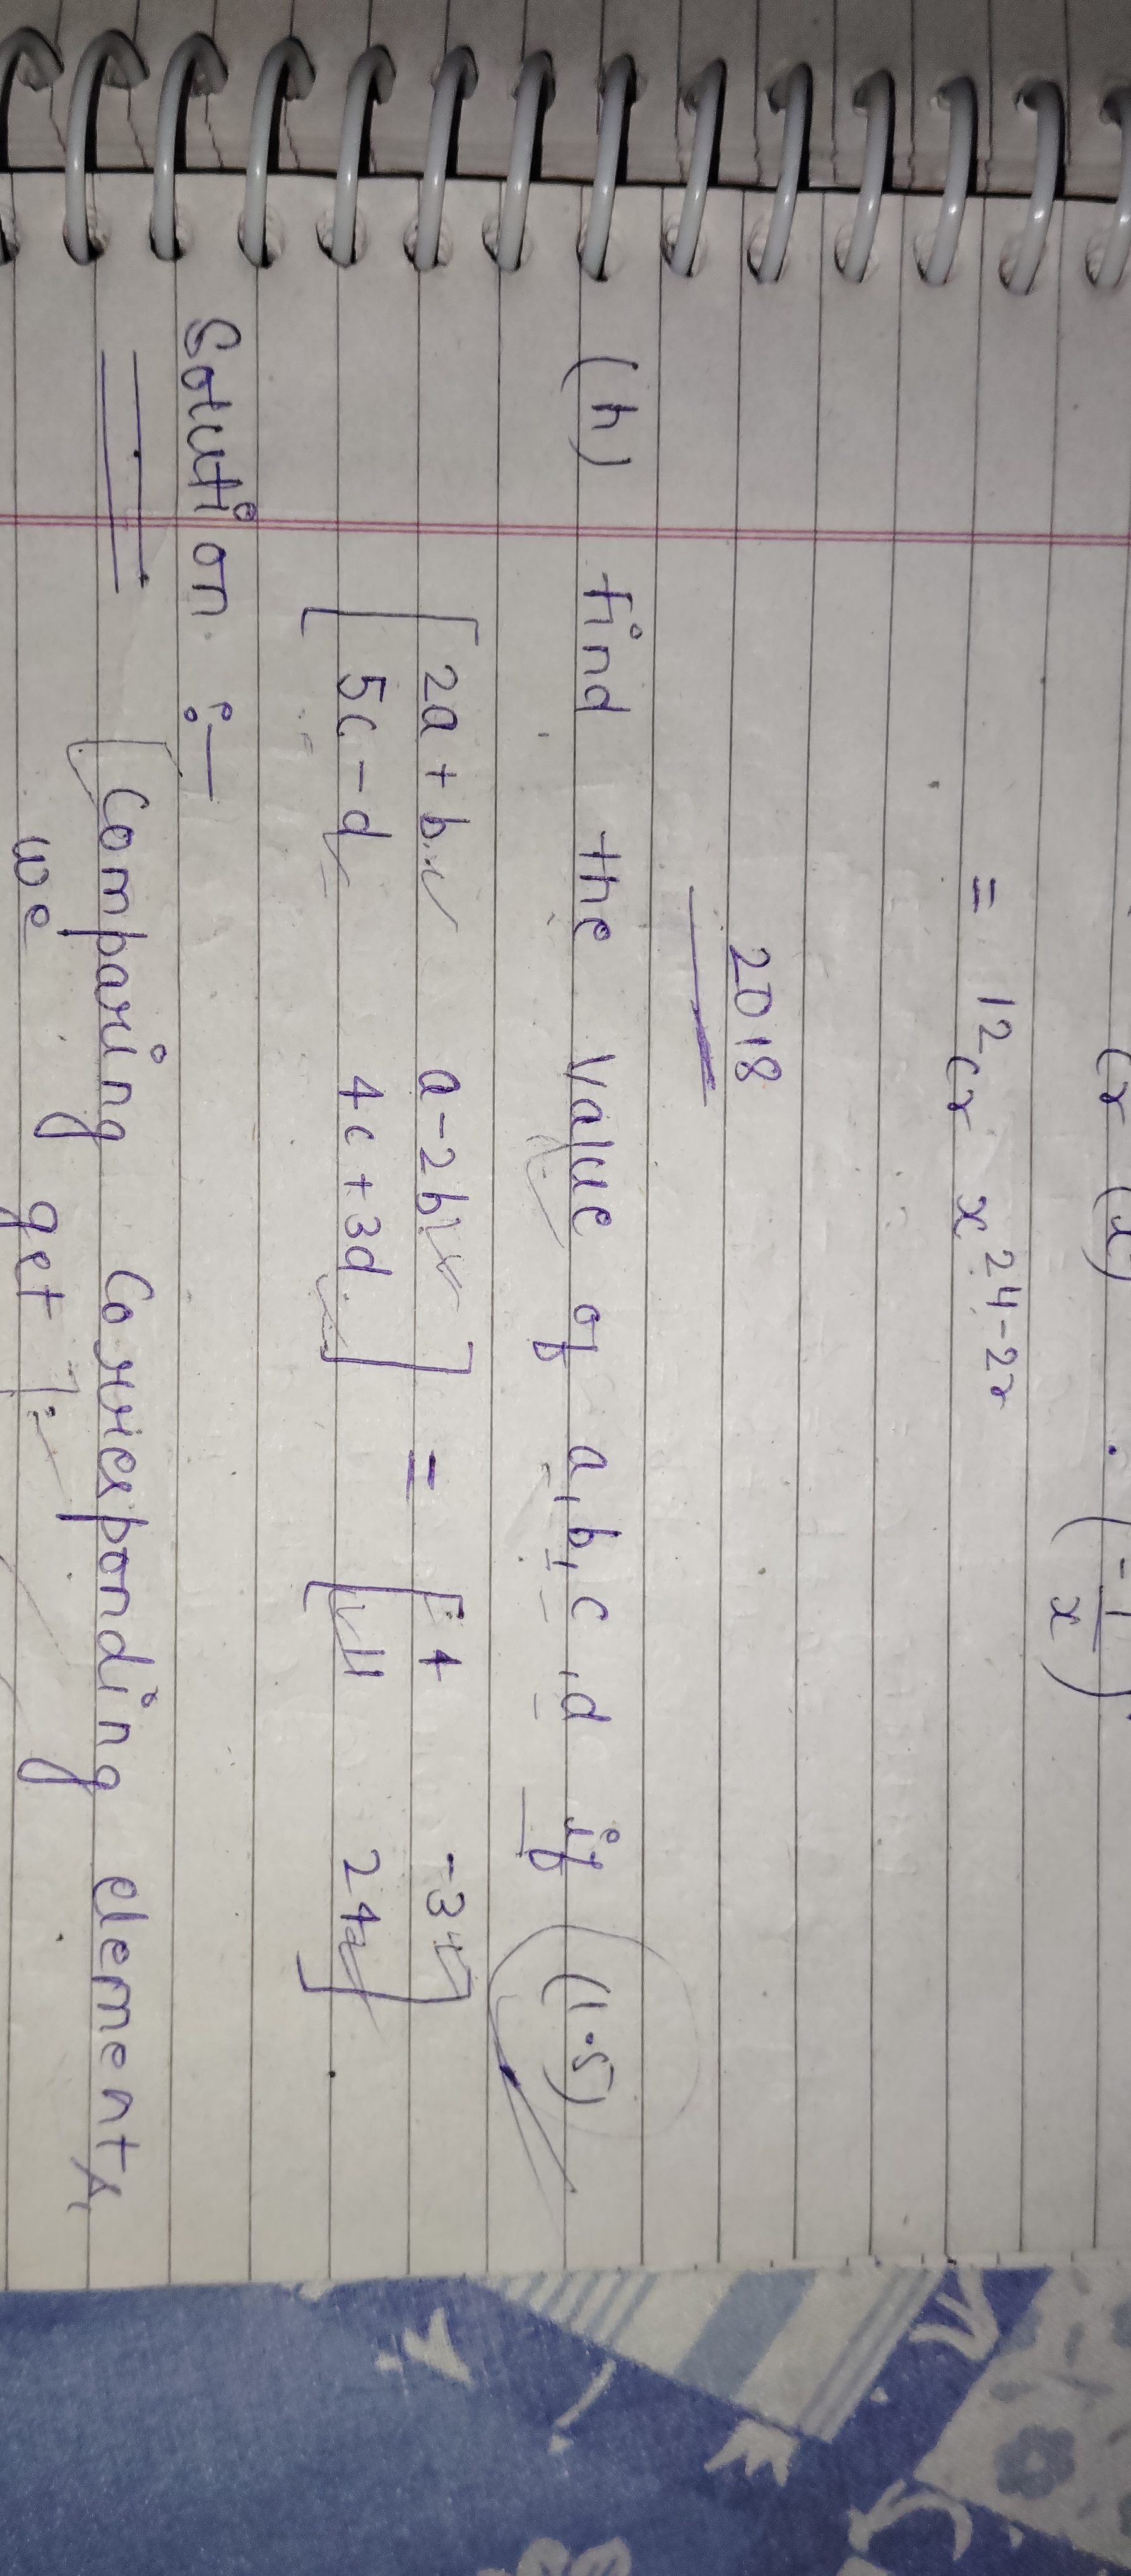 (r (x) . (-1/x)
= 12cr x^24-2r
2018
(h) find the value of a,b,c,d if (1.5)
[2a+b a-2b] = [4 -3]
[5c-d 4c+3d] [11 24]
Solution :-
[Comparing Corresponding elements
we get]:-